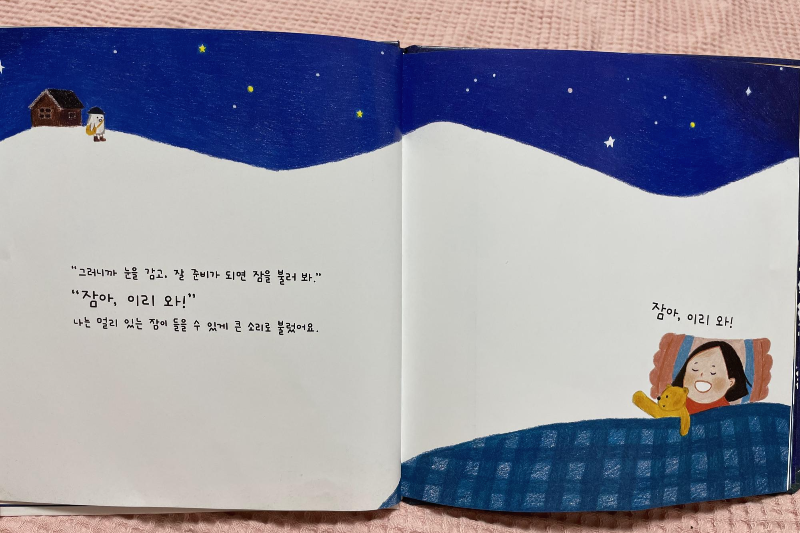 "그러니까 눈을 감고, 잘 준비가 되면 잠을 불러 봐."
"잠아, 이리 와!"
나는 멀리 있는 잠이 들을 수 있게 큰 소리로 불렀어요.
잠아, 이리 와!